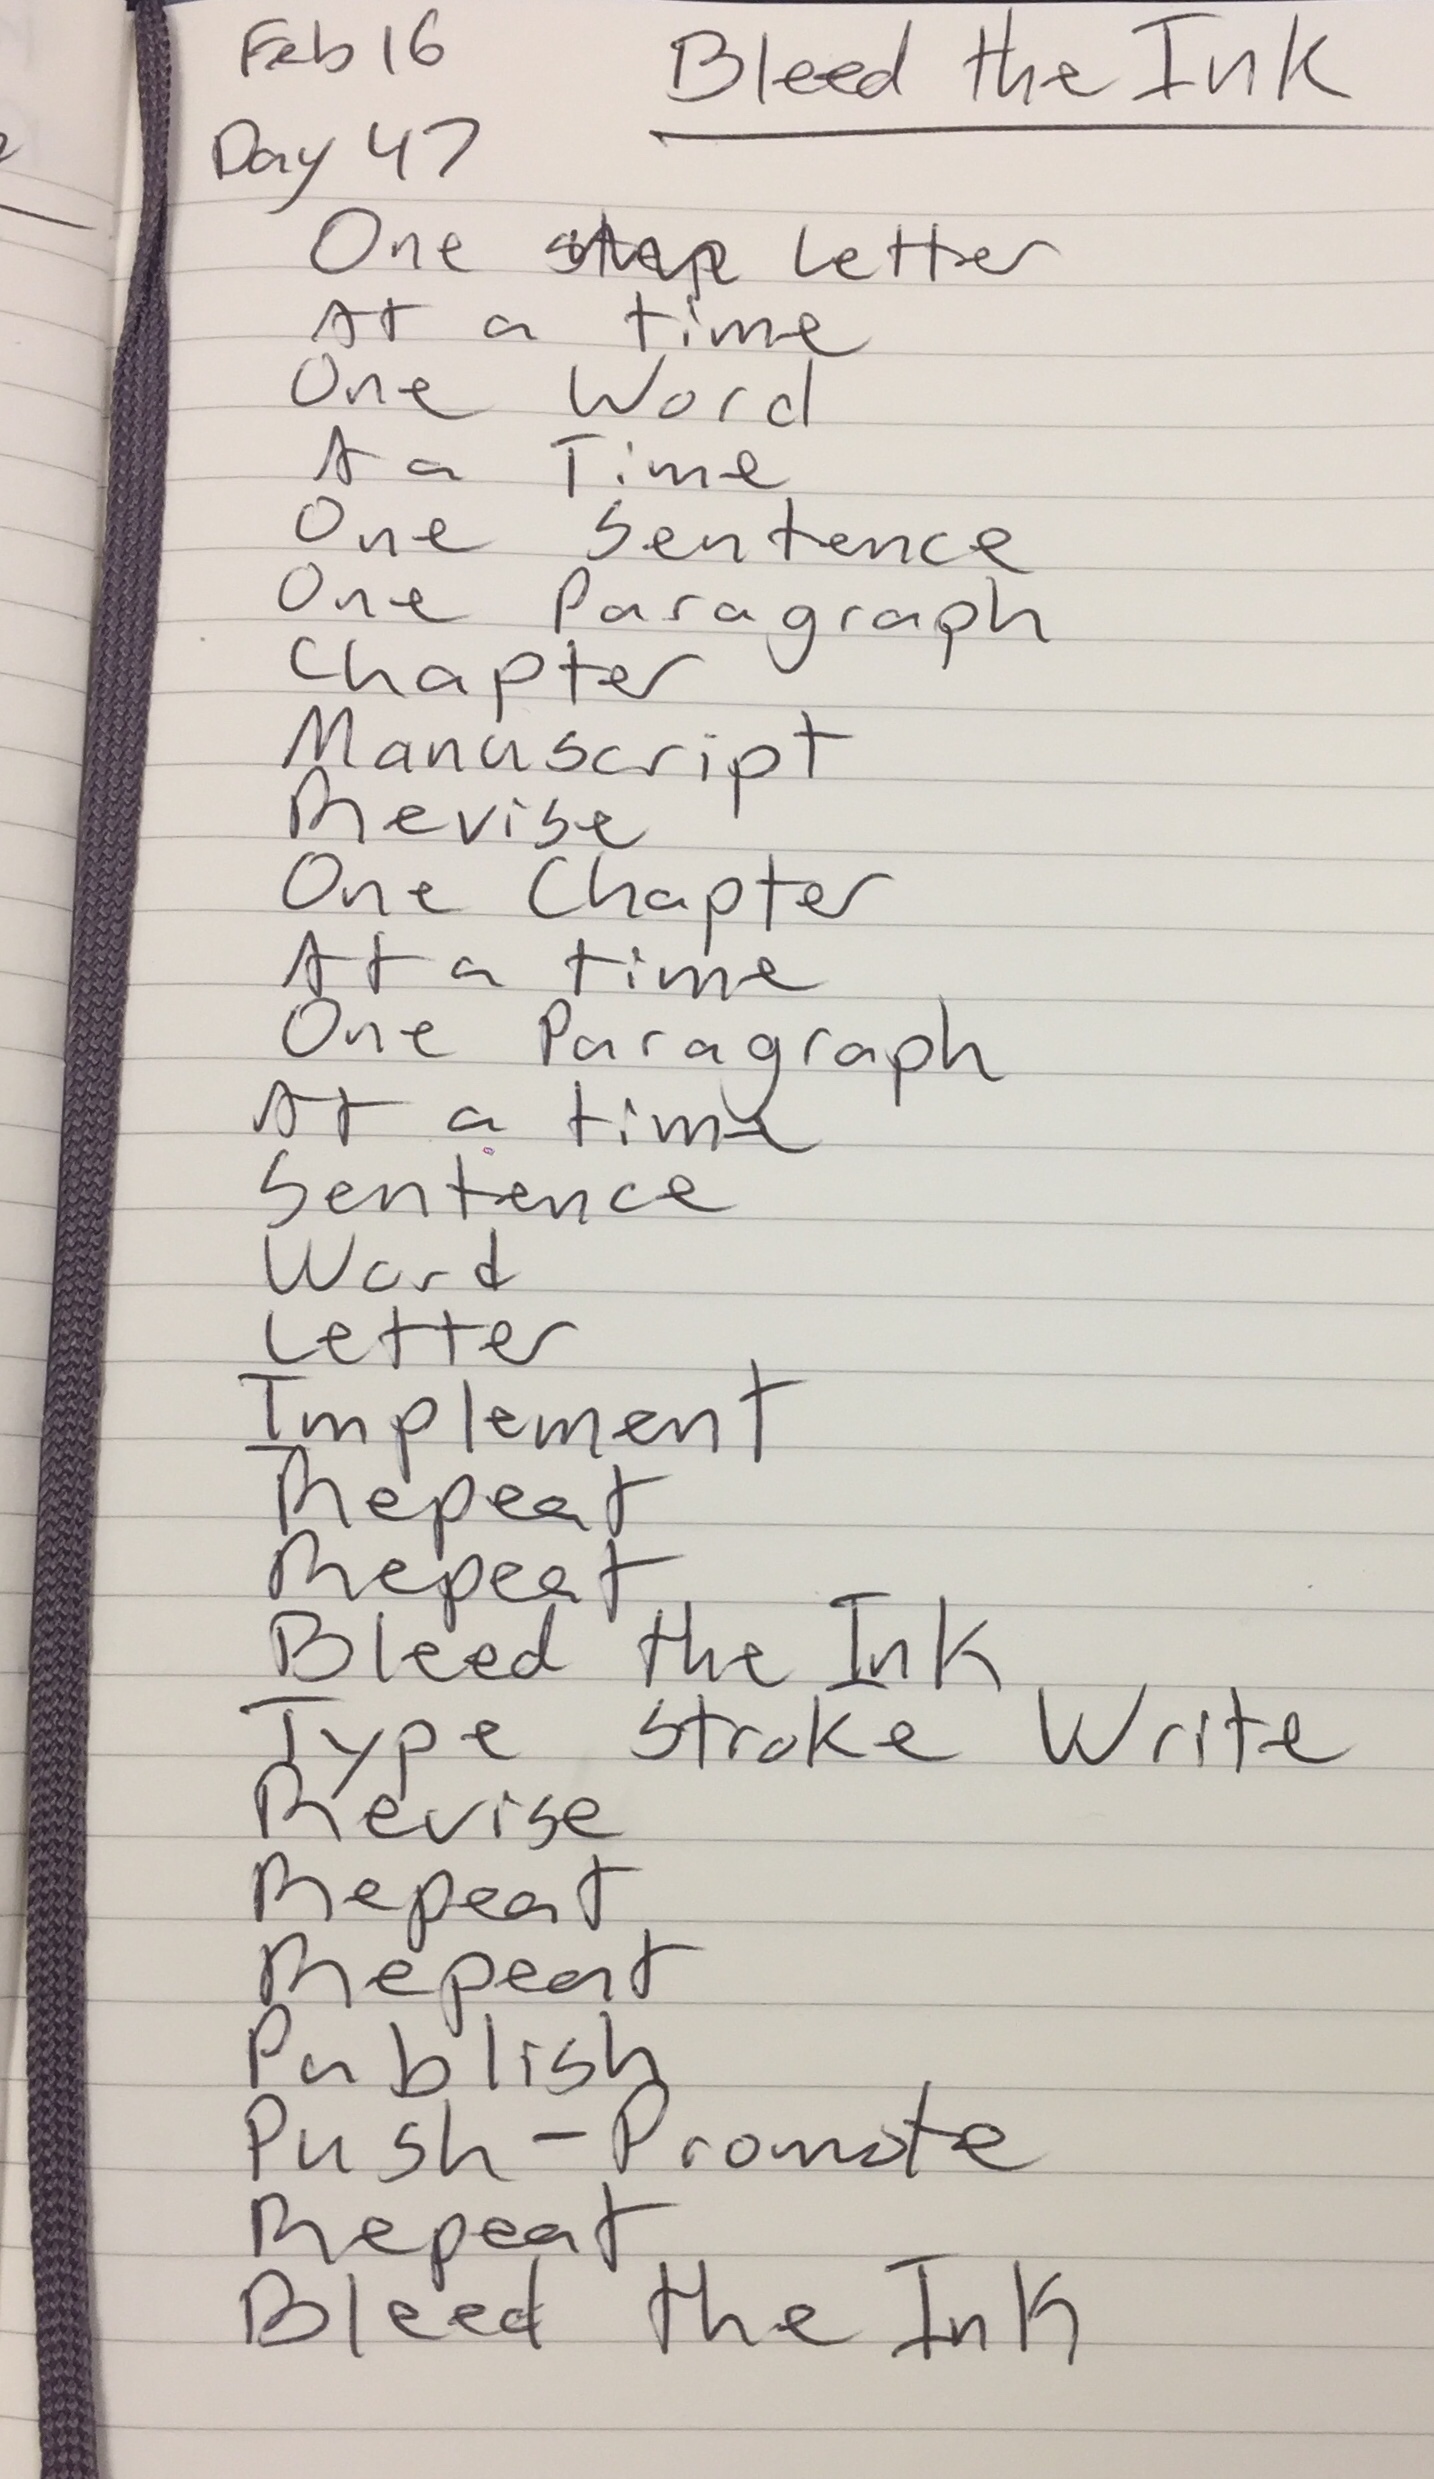 Feb 16
Bleed the Ink
Day 47
One step Letter
At a time
One Word
A a Time
One Sentence
One Paragraph
Chapter
Manuscript
Revise
One Chapter
At a time
One Paragraph
At a time
Sentence
Word
Letter
Implement
Repeat
Repeat
Bleed the Ink
Type Stroke Write
Revise
Repeat
Repeat
Publish
Push-Promote
Repeat
Bleed the Ink